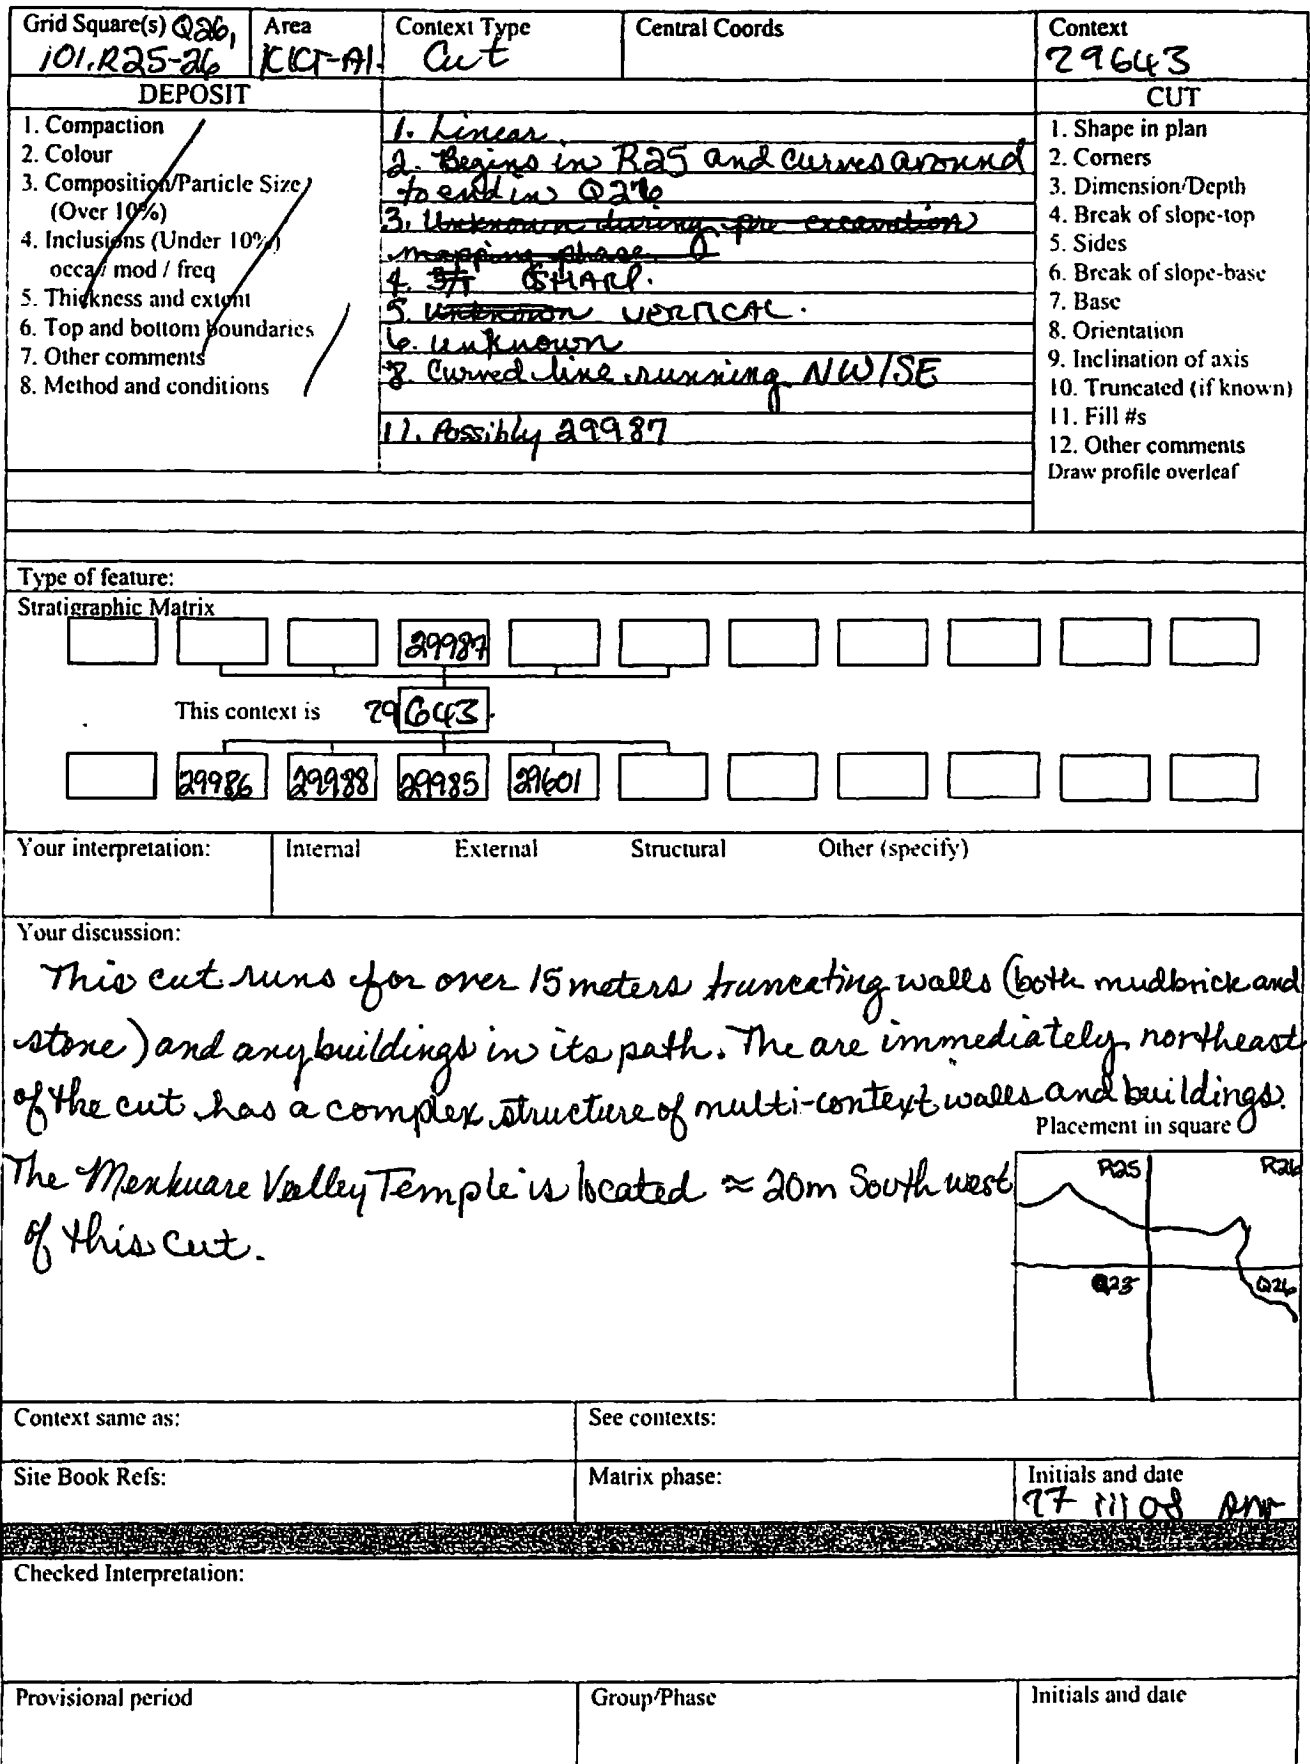 Grid Square(s) Q26,
101.R25-26
Area
KKT-AI.
Context Type
Cut
Central Coords
Context
29643
DEPOSIT
CUT
1. Compaction
2. Colour
3. Composition/Particle Size
(Over 10%)
4. Inclusions (Under 10%)
occa / mod / freq
5. Thickness and extent
6. Top and bottom boundaries
7. Other comments
8. Method and conditions
1. Linear
2. Begins in R25 and curves around
to end in Q26
3. Unknown during pre-excavation
mapping phase.
4. SHARP.
5. Unknown VERTICAL.
6. Unknown
8. Curved line running NW/SE
11. Possibly 29987
1. Shape in plan
2. Corners
3. Dimension/Depth
4. Break of slope-top
5. Sides
6. Break of slope-base
7. Base
8. Orientation
9. Inclination of axis
10. Truncated (if known)
11. Fill #s
12. Other comments
Draw profile overleaf
Type of feature:
Stratigraphic Matrix
29987
This context is 29643.
29986 29988 29985 29601
Your interpretation:
Internal External Structural Other (specify)
Your discussion:
This cut runs for over 15 meters truncating walls (both mudbrick and
stone) and any buildings in its path. The are immediately northeast
of the cut has a complex structure of multi-context walls and buildings.
Placement in square
The Menkuare Valley Temple is located ≈ 20m South west
of this cut.
R25 R26
Q25 Q26
Context same as:
See contexts:
Site Book Refs:
Matrix phase:
Initials and date
27 III 08
Checked Interpretation:
Provisional period
Group/Phase
Initials and date